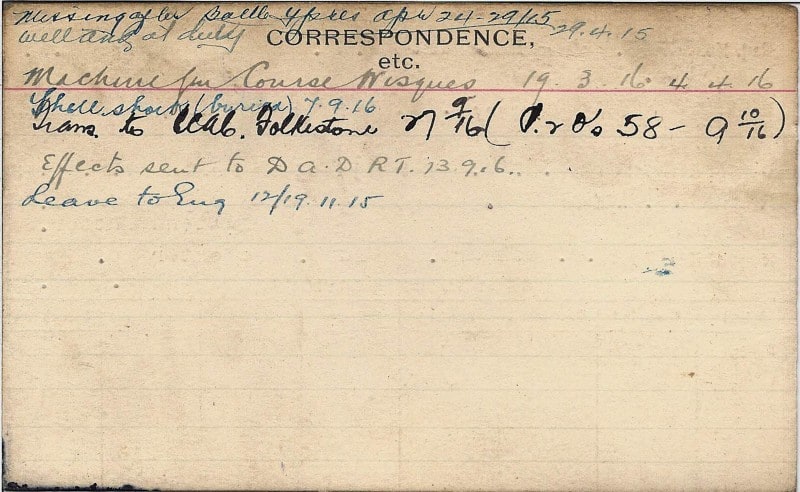 Missing after battle Ypres Apr 24-29/15
well and at duty 29.4.15
CORRESPONDENCE,
etc.
Machine Gun Course Wisques 19.3.16 4.4.16
Shell shock (buried) 7.9.16
Trans. to CCAC. Folkestone 27 9/16 (P. 2 O's 58 - 9 10/16)
Effects sent to D.A.D.R.T. 13.9.16.
Leave to Eng 12/19.11.15